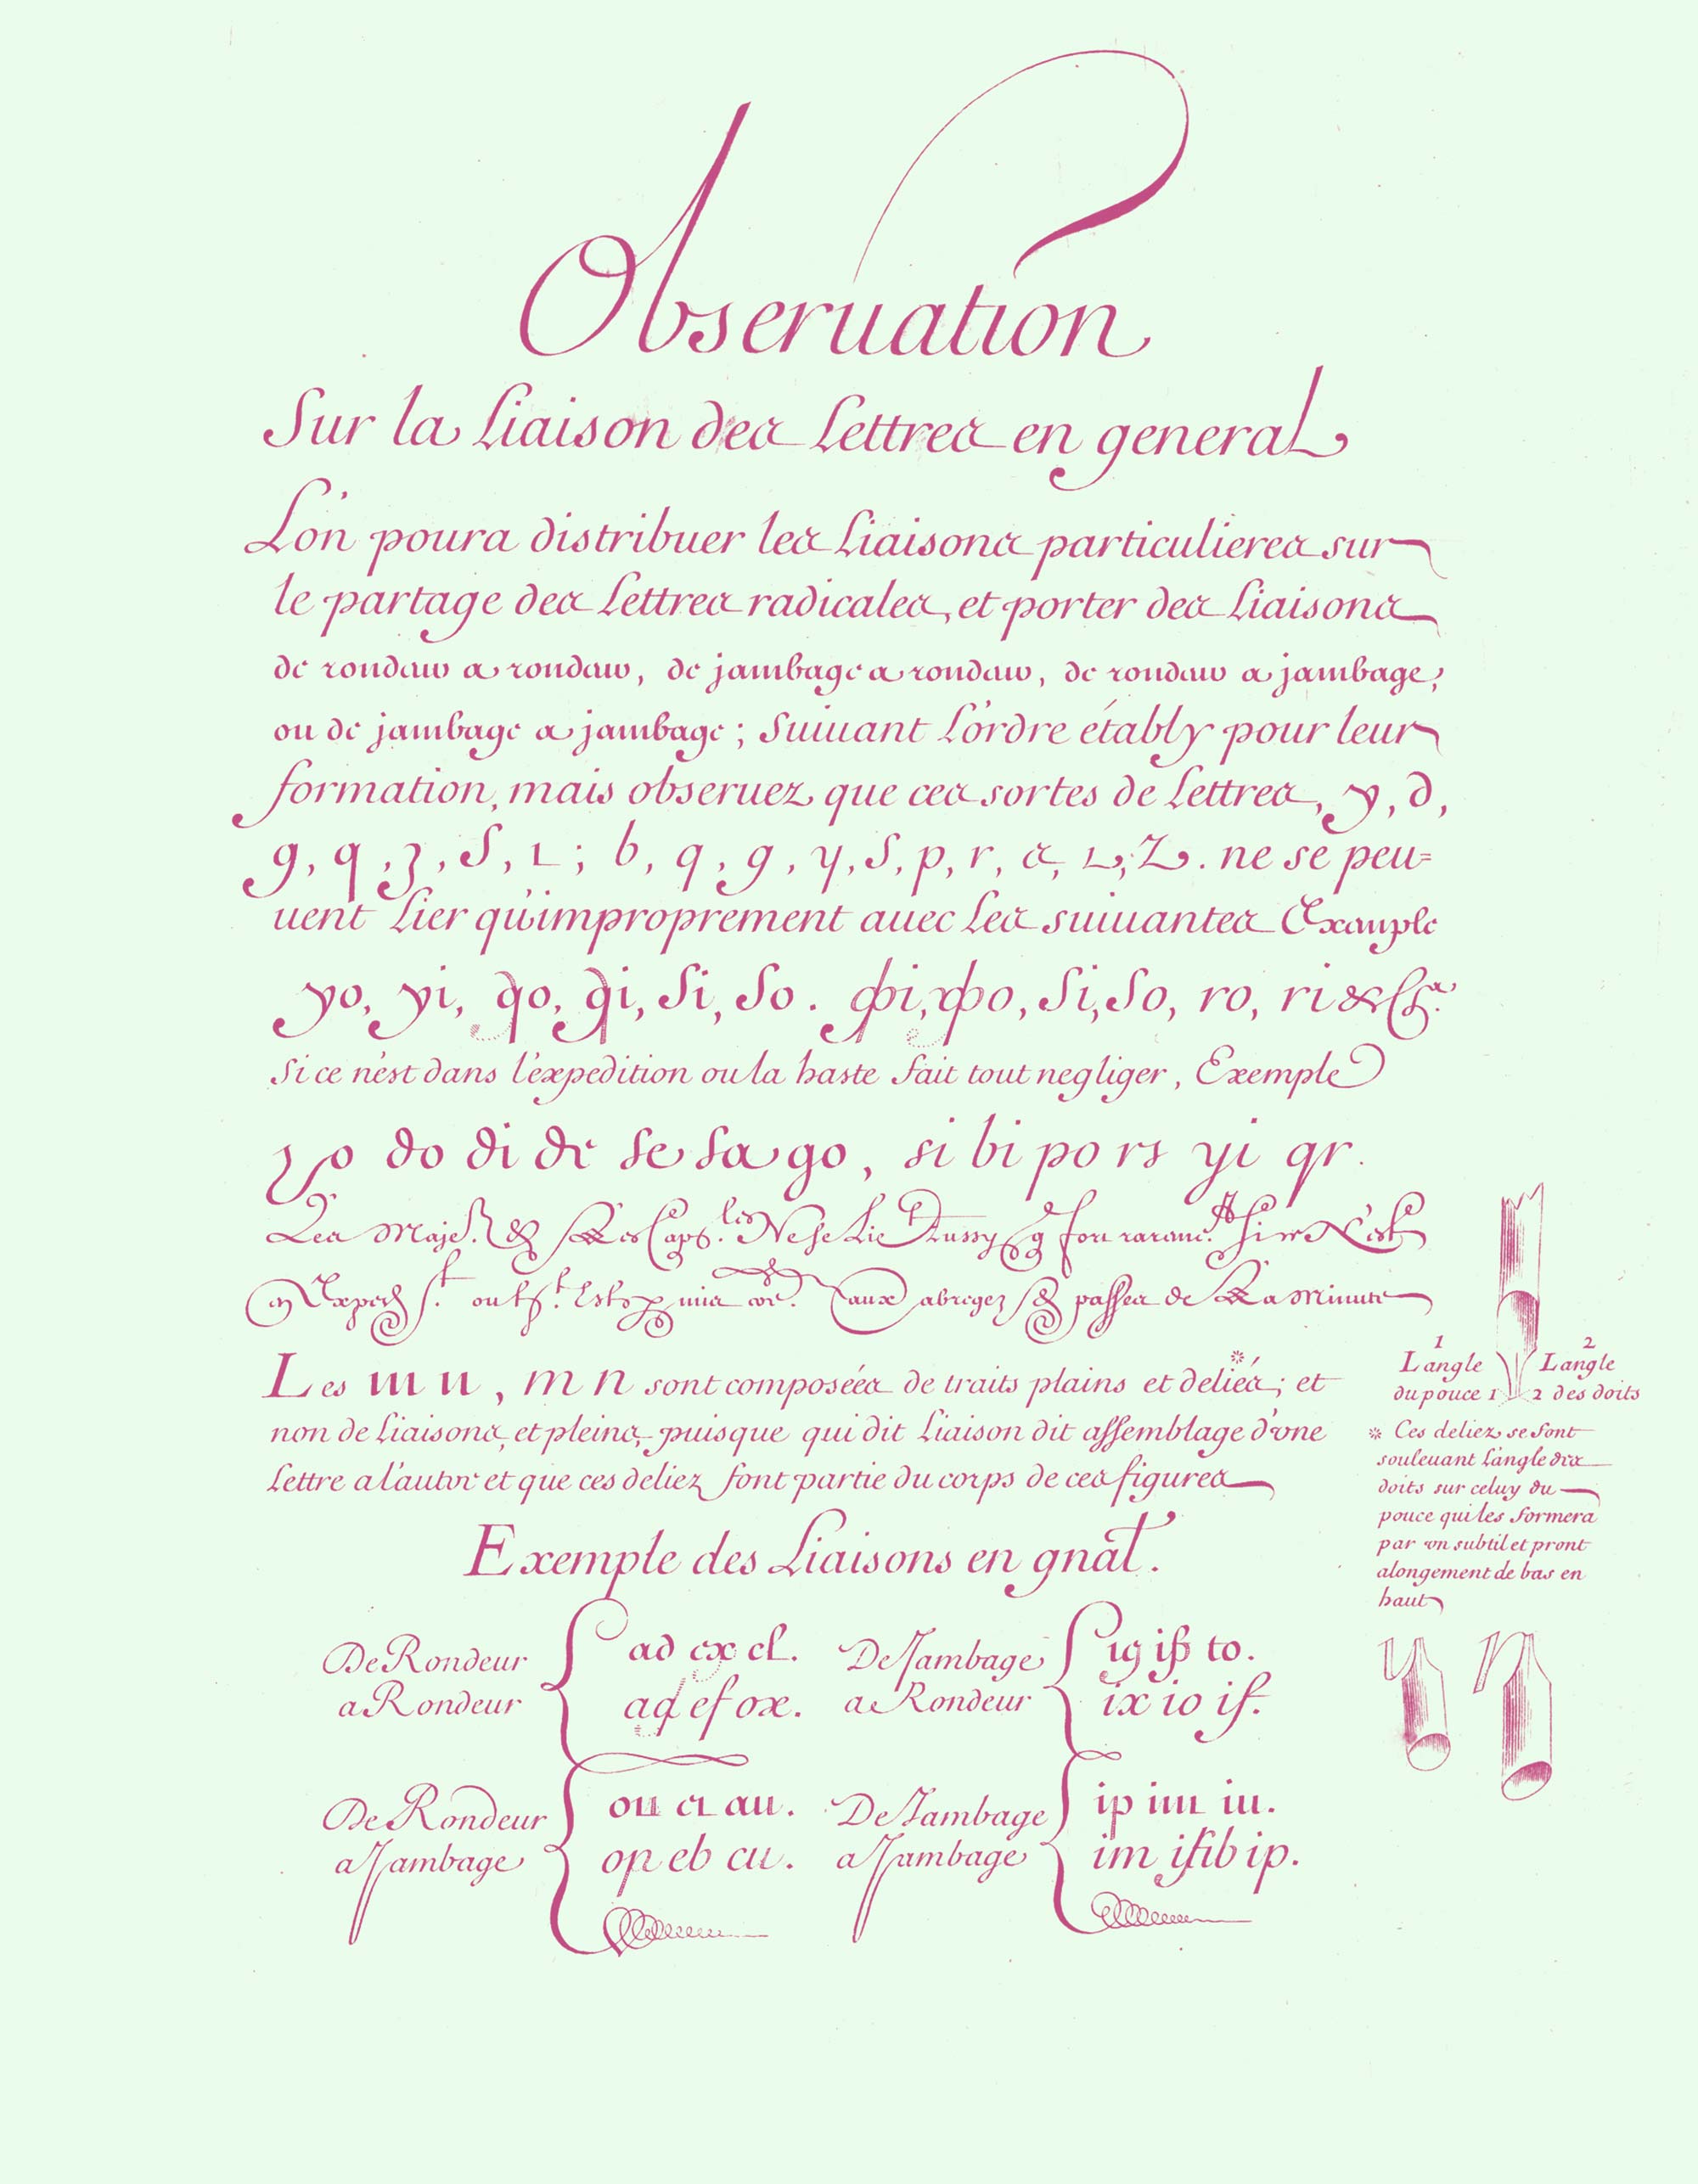 Obseruation
Sur la Liaison des Lettres en general
L'on poura distribuer les Liaisons particulieres sur
le partage des Lettres radicales, et porter des Liaisons
de rondeur a rondeur, de jambage a rondeur, de rondeur a jambage,
ou de jambage a jambage; Suiuant L'ordre étably pour leur
formation, mais obseruez que ces sortes de Lettres, y, d,
g, q, z, S, L; b, q, g, y, S, p, r, s, L, Z. ne se peu=
uent Lier qu'improprement auec Les suiuantes Exemple
yo, yi, qo, qi, Si, So. Si, So, ro, ri &
Si ce n'est dans l'expedition ou la haste fait tout negliger, Exemple
yo do di de se sa go, si bi po rs yi qr.
Les Maje. & Ne se Lie Aussy
aux abregez passes de La Minute
Les m n, m n sont composéés de traits plains et deliés*; et
non de Liaisons, et pleins, puisque qui dit Liaison dit assemblage d'vne
Lettre a l'autre et que ces deliez font partie du corps de ces figures
1 2
L'angle du pouce 1 2 L'angle des doits
* Ces deliez se font
souleuant L'angle des
doits sur celuy du
pouce qui les formera
par vn subtil et pront
alongement de bas en
haut
Exemple des Liaisons en gnal.
De Rondeur a Rondeur
ad ex el.
aq ef ox.
De Jambage a Rondeur
ig iß to.
ix io if.
De Rondeur a Jambage
ou ci au.
op eb cu.
De Jambage a Jambage
ip im iu.
im ifib ip.